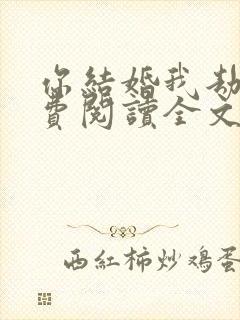 你結婚我劫
費閱讀全文
西紅柿炒鸡蛋